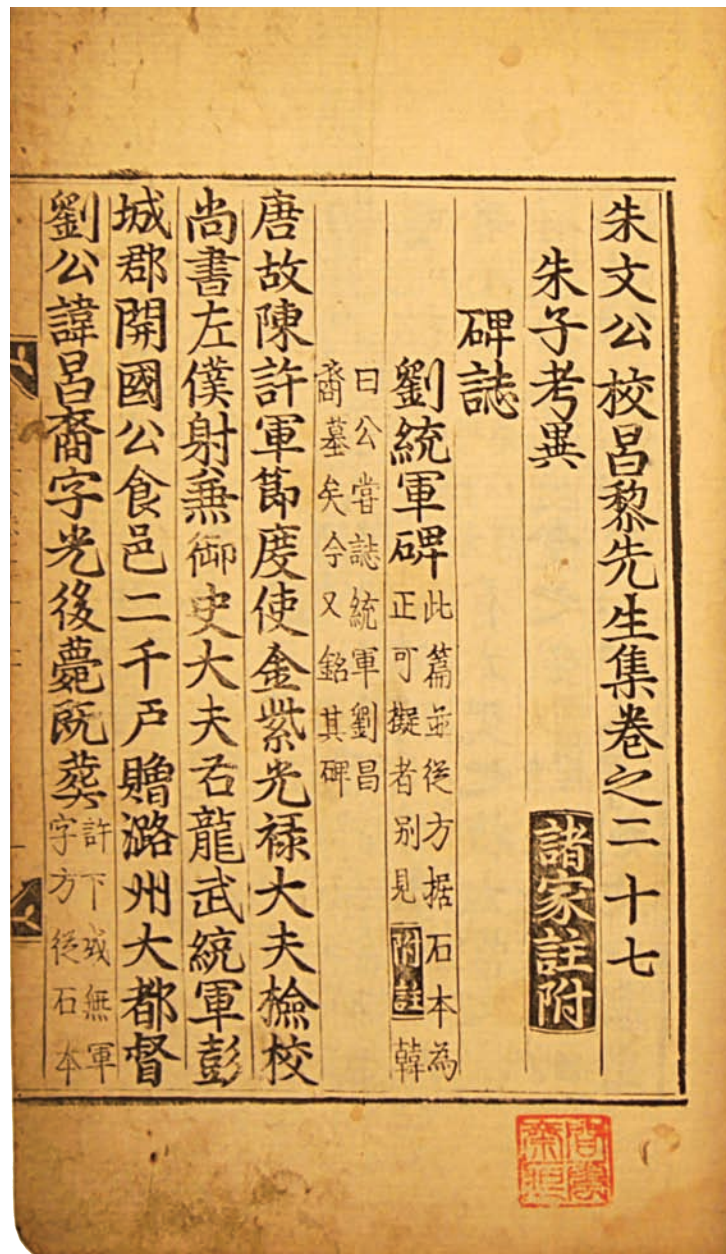 朱文公校昌黎先生集卷之二十七
朱子考異 諸家註附
碑誌
劉統軍碑
此篇並從方据石本為
正可擬者别見附註韓
曰公嘗誌統軍劉昌
裔墓矣今又銘其碑
唐故陳許軍節度使金紫光祿大夫撿校
尚書左僕射兼御史大夫右龍武統軍彭
城郡開國公食邑二千戶贈潞州大都督
劉公諱昌裔字光後薨既葬
許下或無軍
字方從石本